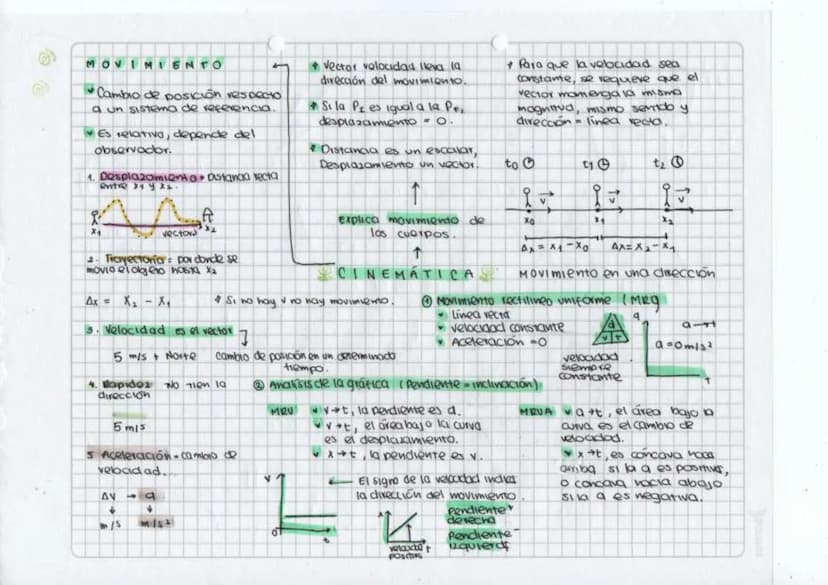 MOVIMIENTO
Cambio de posición respecto
a un sistema de referencia.
Es relativo, depende del
observador.
1. Desplazamiento = Distancia recta
entre x1 y x2.
x1
vector
x2
2. Trayectoria = por donde se
movio el objeto hasta x2
Δx = x2 - x1
* Si no hay v no hay movimiento.
3. Velocidad es el vector
5 m/s + Norte
cambio de posición en un determinado
tiempo.
4. Rapidez no tien la
dirección
5 m/s
5 Aceleración = cambio de
velocidad.
Δv → a
m/s
m/s²
* Vector velocidad lleva la
dirección del movimiento.
* Si la
es igual a la
desplazamiento = 0.
* Distancia es un escalar,
Desplazamiento un vector.
↑
explica movimiento de
los cuerpos.
↑
CINEMÁTICA
* Para que la velocidad sea
constante, se requiere que el
vector mantenga la misma
magnitud, mismo sentido y
dirección = línea recta.
t0 t1 t2
v v v
x0 x1 x2
Δx = x1 - x0
Δx = x2 - x1
Movimiento en una dirección
① Movimiento rectilíneo uniforme (MRU)
Línea recta
Velocidad constante
Aceleración = 0
d
v t
velocidad
siempre
constante
a
t
a → t
a = 0 m/s²
② Analisis de la gráfica (Pendiente = inclinación)
MRU
v → t, la pendiente es a.
v → t, el área bajo la curva
es el desplazamiento.
x → t, la pendiente es v.
MRUA
a → t, el área bajo la
curva es el cambio de
velocidad.
x → t, es cóncava hacia
arriba si la a es positiva,
o concava hacia abajo
si la a es negativa.
v
0
t
← El signo de la velocidad indica
la dirección del movimiento.
x
t
velocidad
positiva
pendiente +
derecha
Pendiente -
izquierda